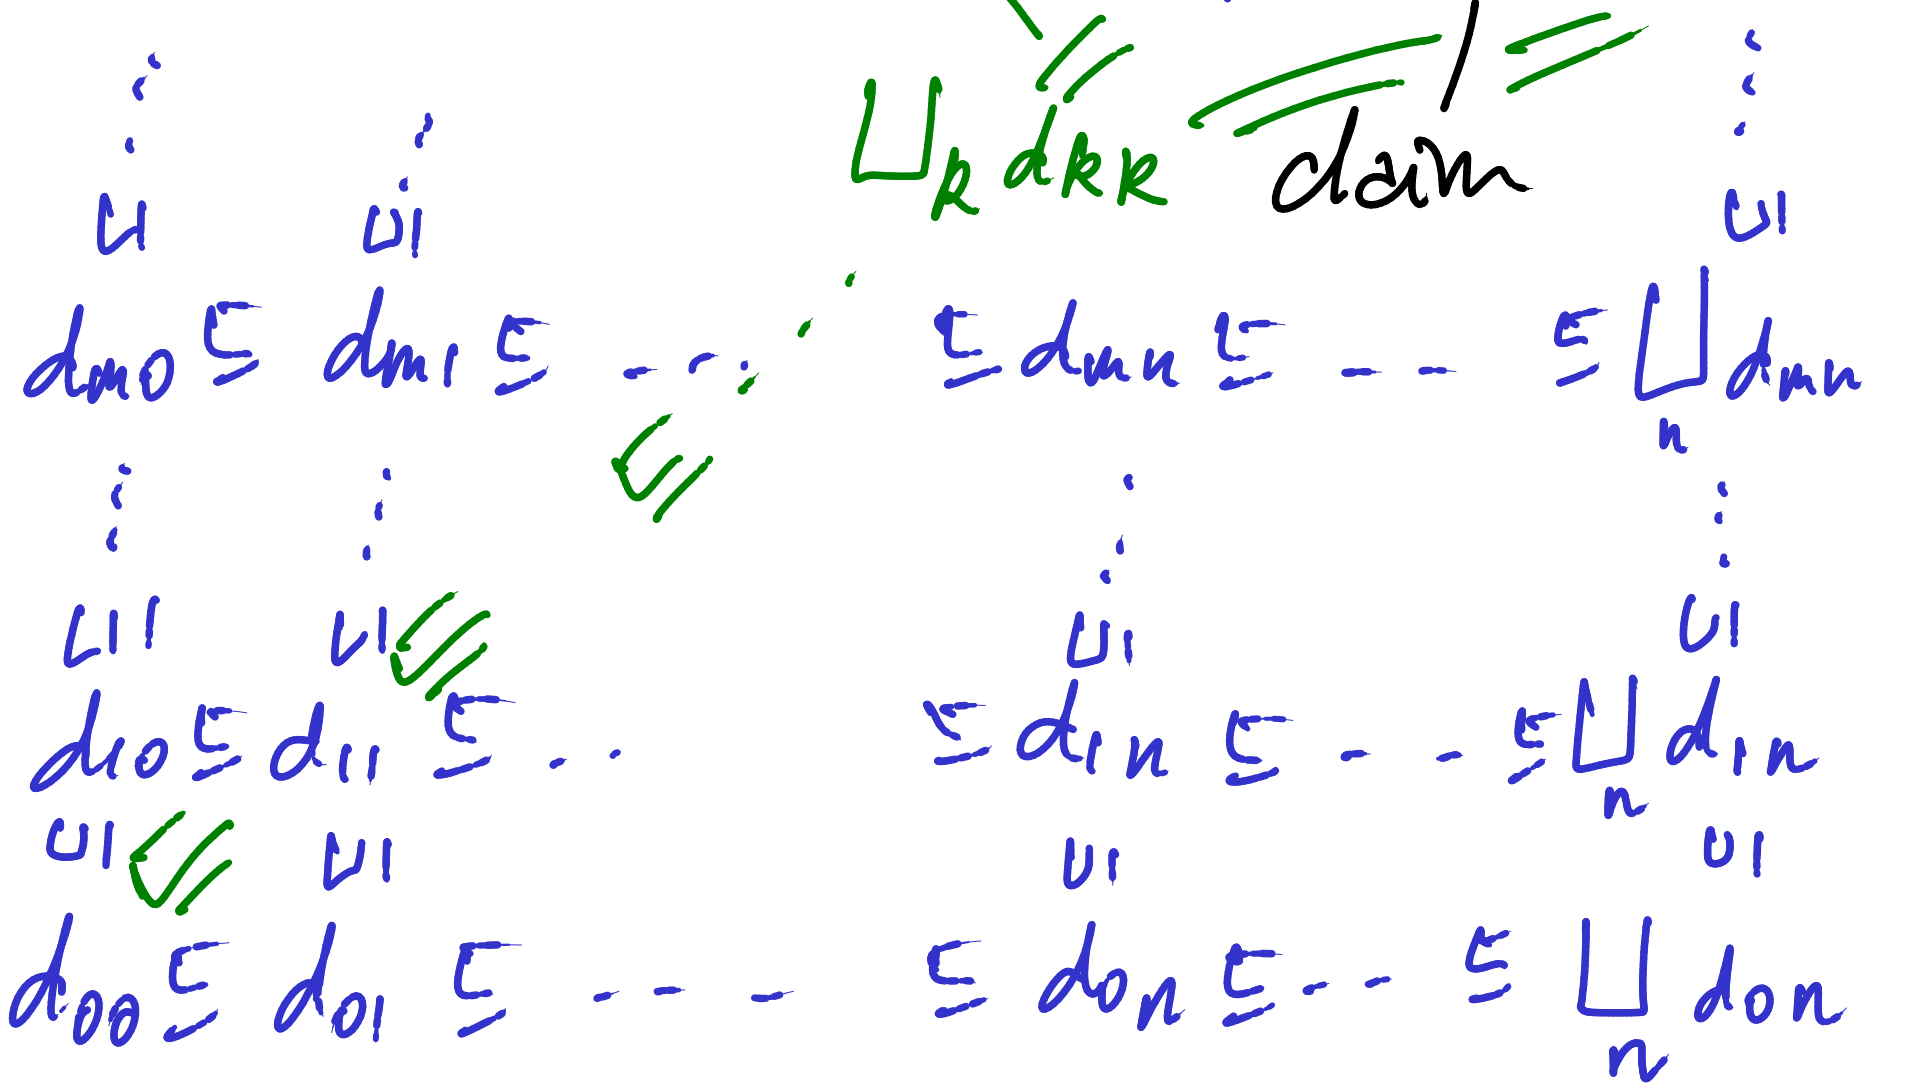 ⊔k dkk = claim =
⊔| ⊔| ⊔|
dm0 ⊑ dm1 ⊑ --- ⊑ dmn ⊑ --- ⊑ ⊔n dmn
⊔| ⊔| ⊔| ⊔|
d10 ⊑ d11 ⊑ -- ⊑ d1n ⊑ --- ⊑ ⊔n d1n
⊔| ⊔| ⊔| ⊔|
d00 ⊑ d01 ⊑ --- ⊑ d0n ⊑ -- ⊑ ⊔n d0n